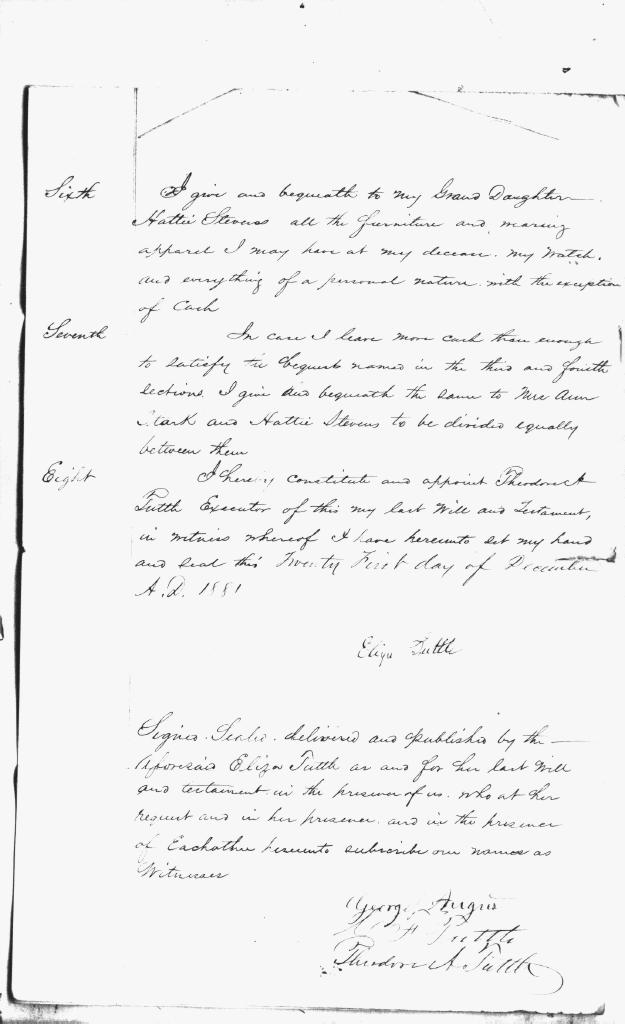 Sixth I give and bequeath to my Grand Daughter
Hattie Stevens all the furniture and wearing
apparel I may have at my decease. my Watch.
and everything of a personal nature. with the exception
of Cash
Seventh In case I leave more cash than enough
to satisfy the bequests named in the third and fourth
sections. I give and bequeath the same to Mrs Ann
Stark and Hattie Stevens to be divided equally
between them
Eight I hereby constitute and appoint Theodore A
Tuttle Executor of this my last Will and Testament,
in witness whereof I have hereunto set my hand
and seal this Twenty First day of December
A.D. 1881
Eliza Tuttle
Signed. Sealed. delivered and published by the
Aforesaid Eliza Tuttle as and for her last Will
and testament in the presence of us. who at her
request and in her presence. and in the presence
of Eachother hereunto subscribe our names as
Witnesses
George Angus
F Tuttle
Theodore A Tuttle